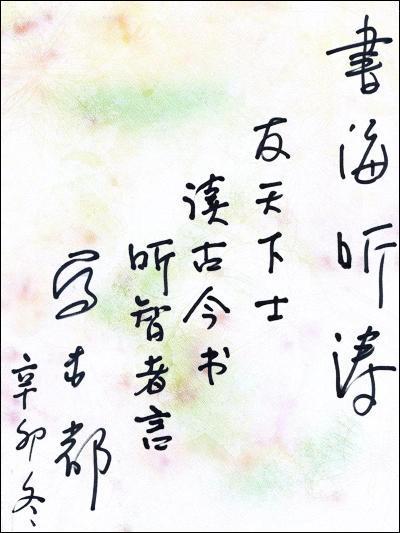 書海听涛
友天下士
读古今书
听智者言
马未都
辛卯冬